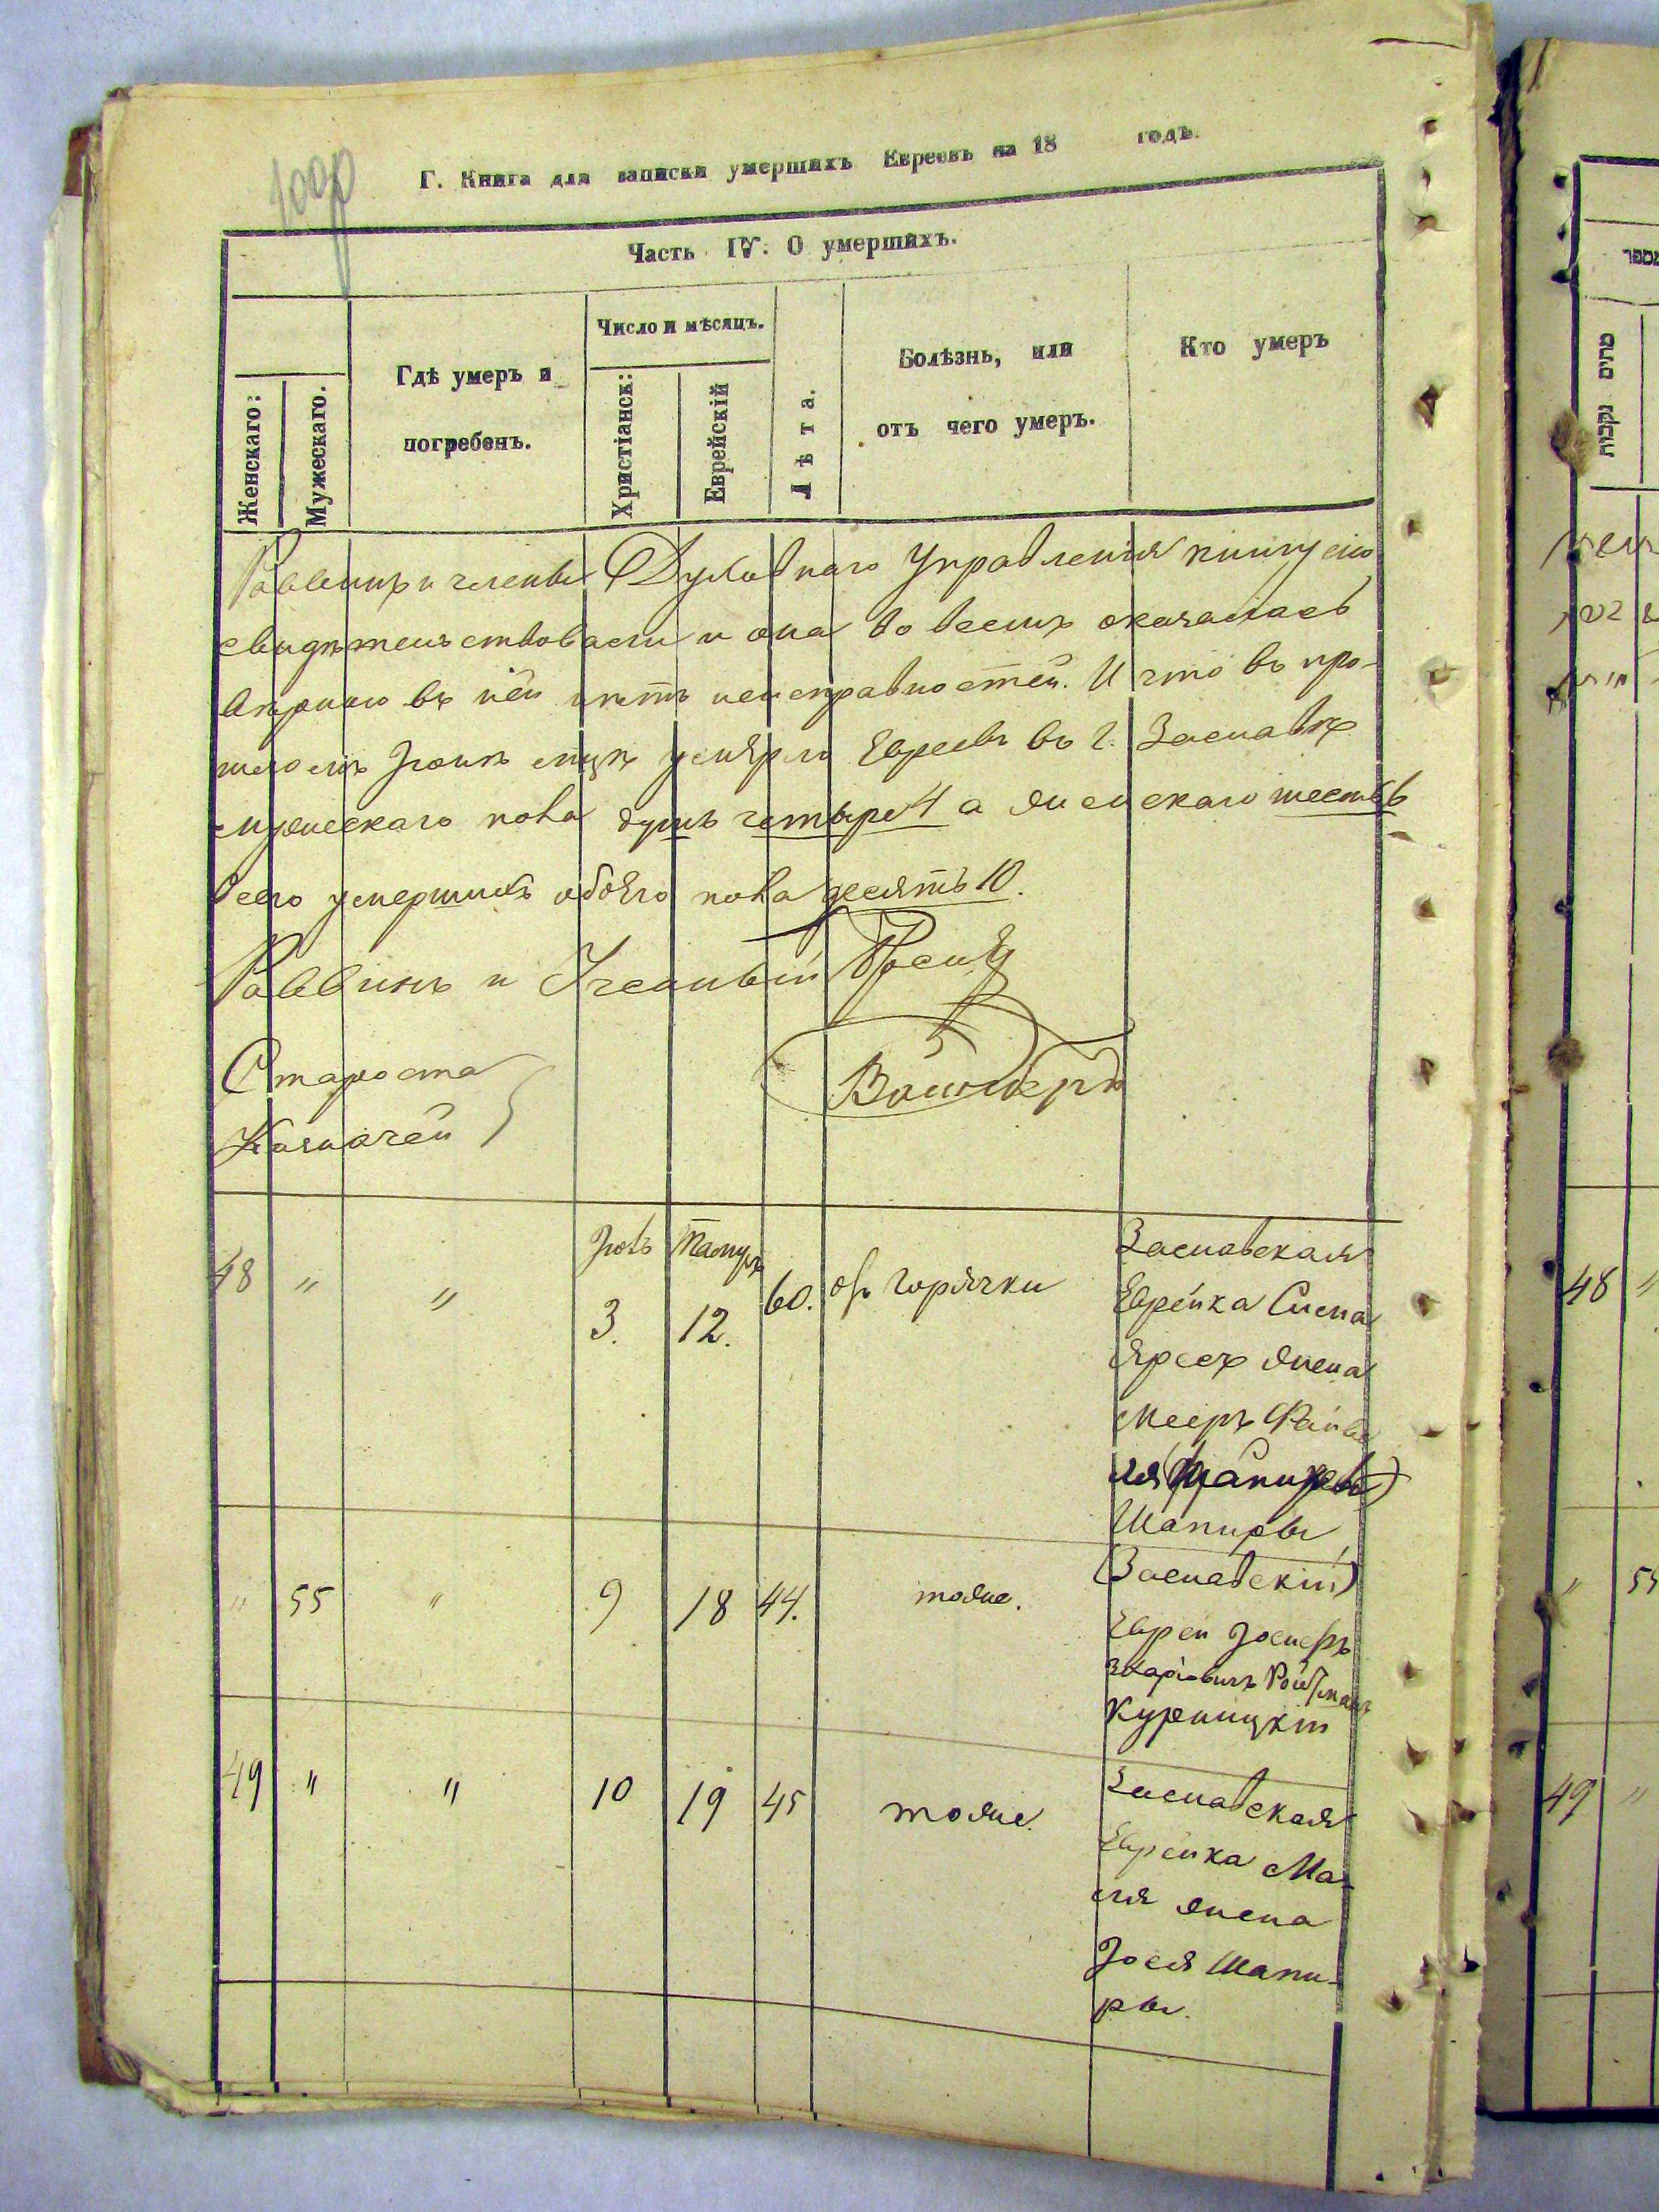 Г. Книга для записки умершихъ Евреевъ на 18 годъ.
Часть IV. О умершихъ.
Женскаго:
Мужескаго.
Гдѣ умеръ и
погребенъ.
Число и мѣсяцъ.
Христіанск:
Еврейскій
Лѣта.
Болѣзнь, или
отъ чего умеръ.
Кто умеръ
Раввинъ и члены Духовнаго Управленія книгу сію
свидѣтельствовали и она во всемъ оказалась
вѣрною въ ней нѣтъ неисправностей. И что въ про-
шломъ Іюнѣ м-цѣ умерло Евреевъ въ г. Заславѣ
мужескаго пола душъ четыре 4 а женскаго шесть 6
всего умершихъ обоего пола десять 10.
Раввинъ и Ученый
Староста
Казначей
Вайнеръ
48 " " Іюль 3. Тамуз 12. 60. отъ горячки
Заславская
Еврейка Сима
жена
Мееръ Файве
ля
Шапиры
" 55 " 9 18 44. тоже.
(Заславскій)
Еврей Іосифъ
Ройтман
Курницкій
49 " " 10 19 45 тоже.
Заславская
Еврейка Ма-
ля жена
Іося Шапи-
ры.
מספר
זכרים נקבות
48 "
" 55
49 "